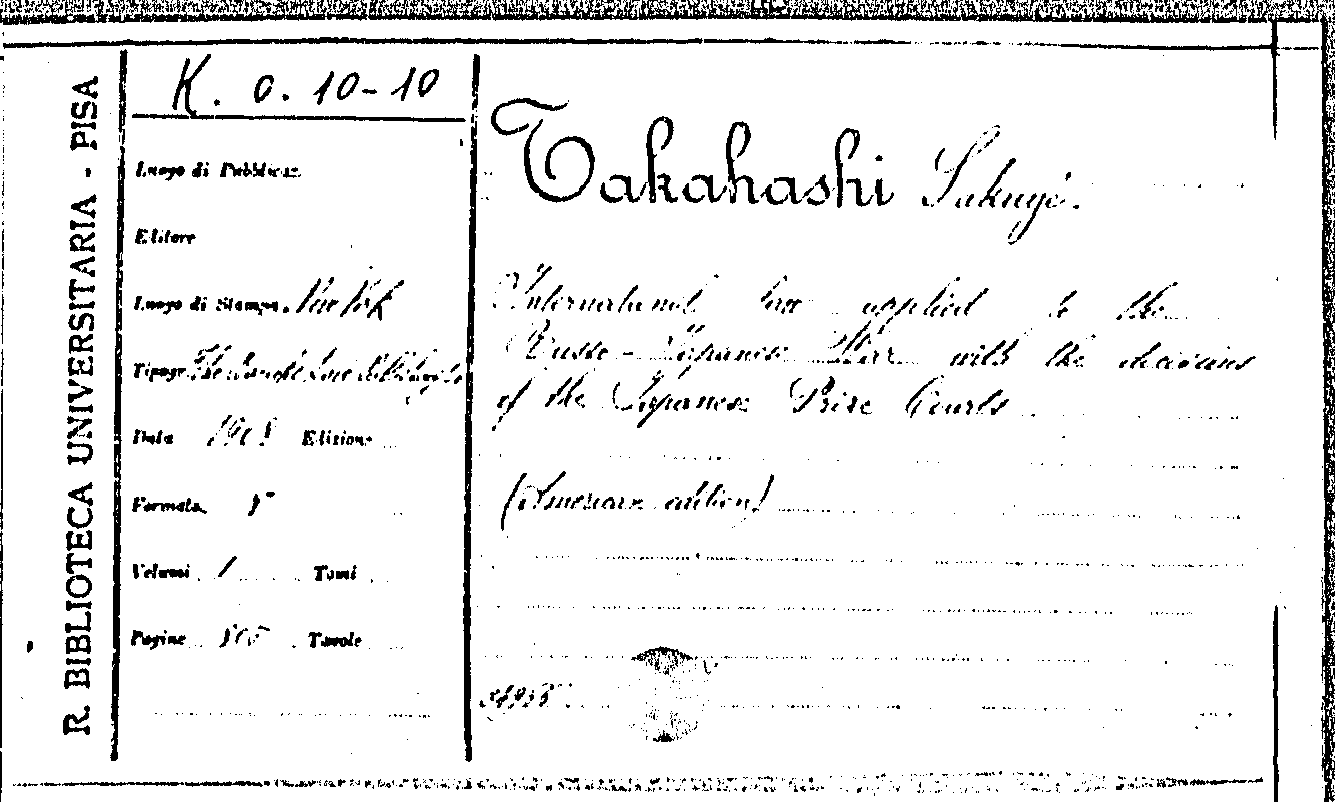 R. BIBLIOTECA UNIVERSITARIA - PISA
K. O. 10-10
Luogo di Pubblicaz.
Editore
Luogo di Stampa.
Tipogr. The
Data 1908 Edizione
Formato 8°
Volumi 1 Tomi
Pagine Tavole
Takahashi Sakuyé.
International law applied to the
Russo-Japanese War with the decisions
of the Japanese Prize Courts
(American edition)